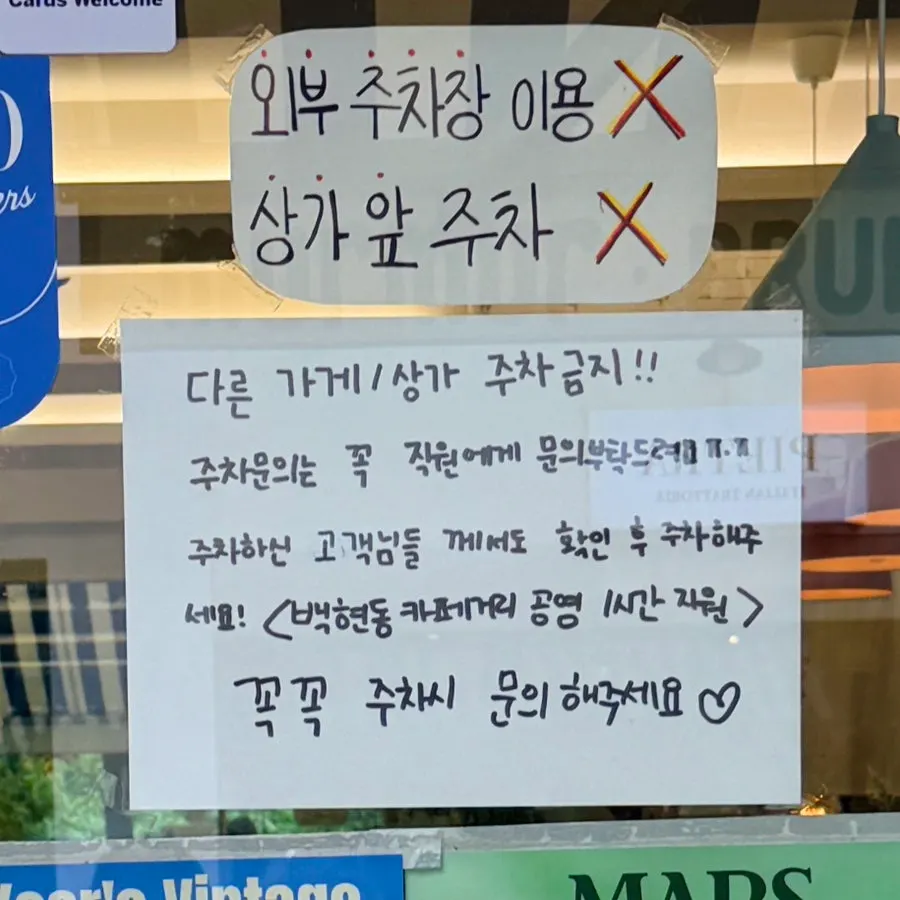 Cards Welcome
외부 주차장 이용 X
상가 앞 주차 X
다른 가게/상가 주차금지!!
주차문의는 꼭 직원에게 문의부탁드려요 ㅠ.ㅠ
주차하신 고객님들 께서도 확인 후 주차해주
세요! <백현동 카페거리 공영 1시간 지원>
꼭꼭 주차시 문의 해주세요♡
PIETRA
ITALIAN TRATTORIA
Year's Vintage
MARS